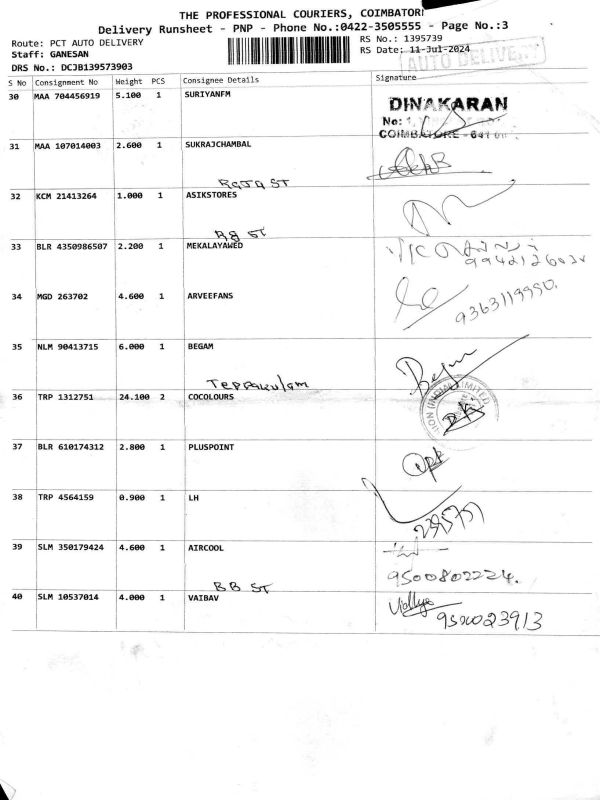 THE PROFESSIONAL COURIERS, COIMBATORE
Delivery Runsheet - PNP - Phone No.:0422-3505555 - Page No.:3
Route: PCT AUTO DELIVERY RS No.: 1395739
Staff: GANESAN RS Date: 11-Jul-2024
AUTO DELIVERY
DRS No.: DCJB139573903
S No Consignment No Weight PCS Consignee Details Signature
30 MAA 704456919 5.100 1 SURIYANFM
DINAKARAN
No:
COIMBATORE - 641
31 MAA 107014003 2.600 1 SUKRAJCHAMBAL
Raja ST
32 KCM 21413264 1.000 1 ASIKSTORES
RG ST
33 BLR 4350986507 2.200 1 MEKALAYAWED
34 MGD 263702 4.600 1 ARVEEFANS
9363119990.
35 NLM 90413715 6.000 1 BEGAM
Begum
Teppakulam
36 TRP 1312751 24.100 2 COCOLOURS
(INDIA) LIMITED
37 BLR 610174312 2.800 1 PLUSPOINT
38 TRP 4564159 0.900 1 LH
39 SLM 350179424 4.600 1 AIRCOOL
9500802224.
BB ST
40 SLM 10537014 4.000 1 VAIBAV